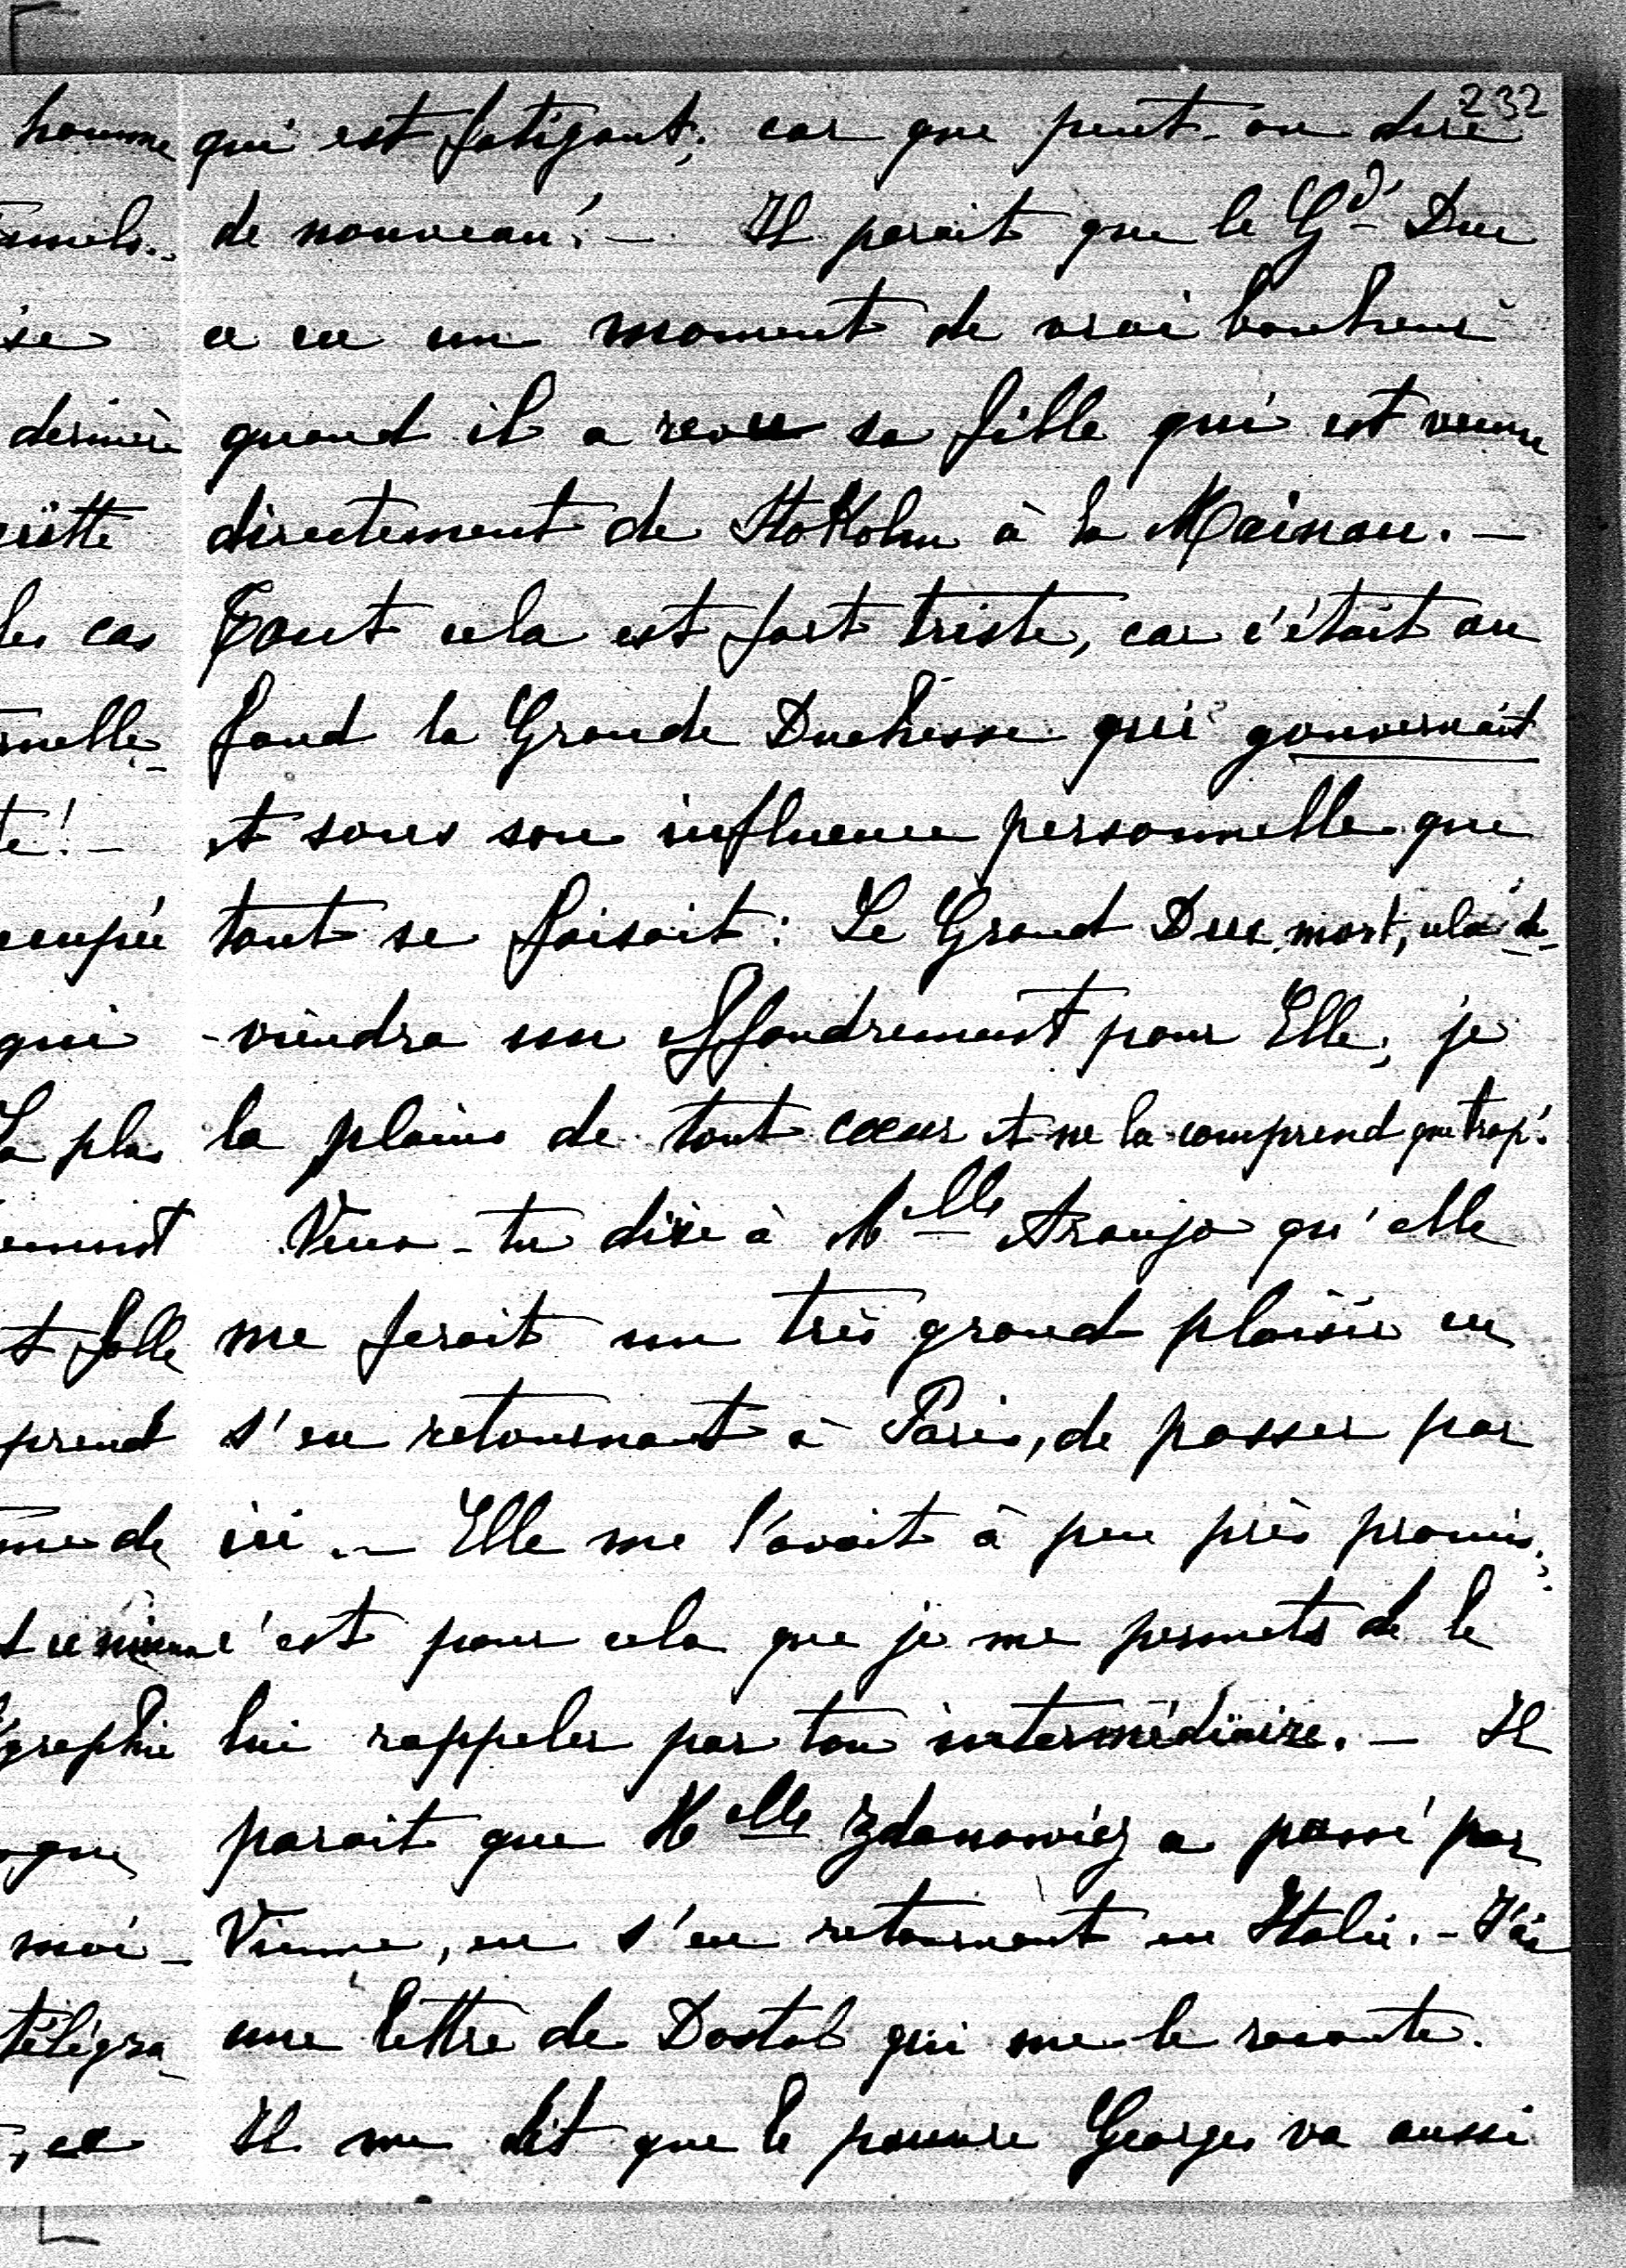 232
homme qui est fatigant; car que peut-on dire
de nouveau! — Il parait que le Gd Duc
a eu un moment de vrai bonheur
dernière quand il a revu sa fille qui est venue
directement de Stokholm à la Mainau. —
les cas Tout cela est fort triste, car c'était au
fond la Grande Duchesse qui gouvernait
et sous son influence personnelle que
tout se faisait: Le Grand Duc mort, cela de-
qui -viendra un effondrement pour Elle, je
la plains de tout cœur et ne la comprend que trop!
Veux-tu dire à Melle Araujo qu'elle
me ferait un très grand plaisir en
prend s'en retournant à Paris, de passer par
ici. — Elle me l'avait à peu près promis;
c'est pour cela que je me permets de le
lui rappeler par ton intermédiaire. — Il
parait que Melle Zdanowicz a passé par
moi- Vienne, en s'en retournant en Italie. - J'ai
télégra- une lettre de Dostal qui me le raconte.
Il me dit que le pauvre Georges va aussi